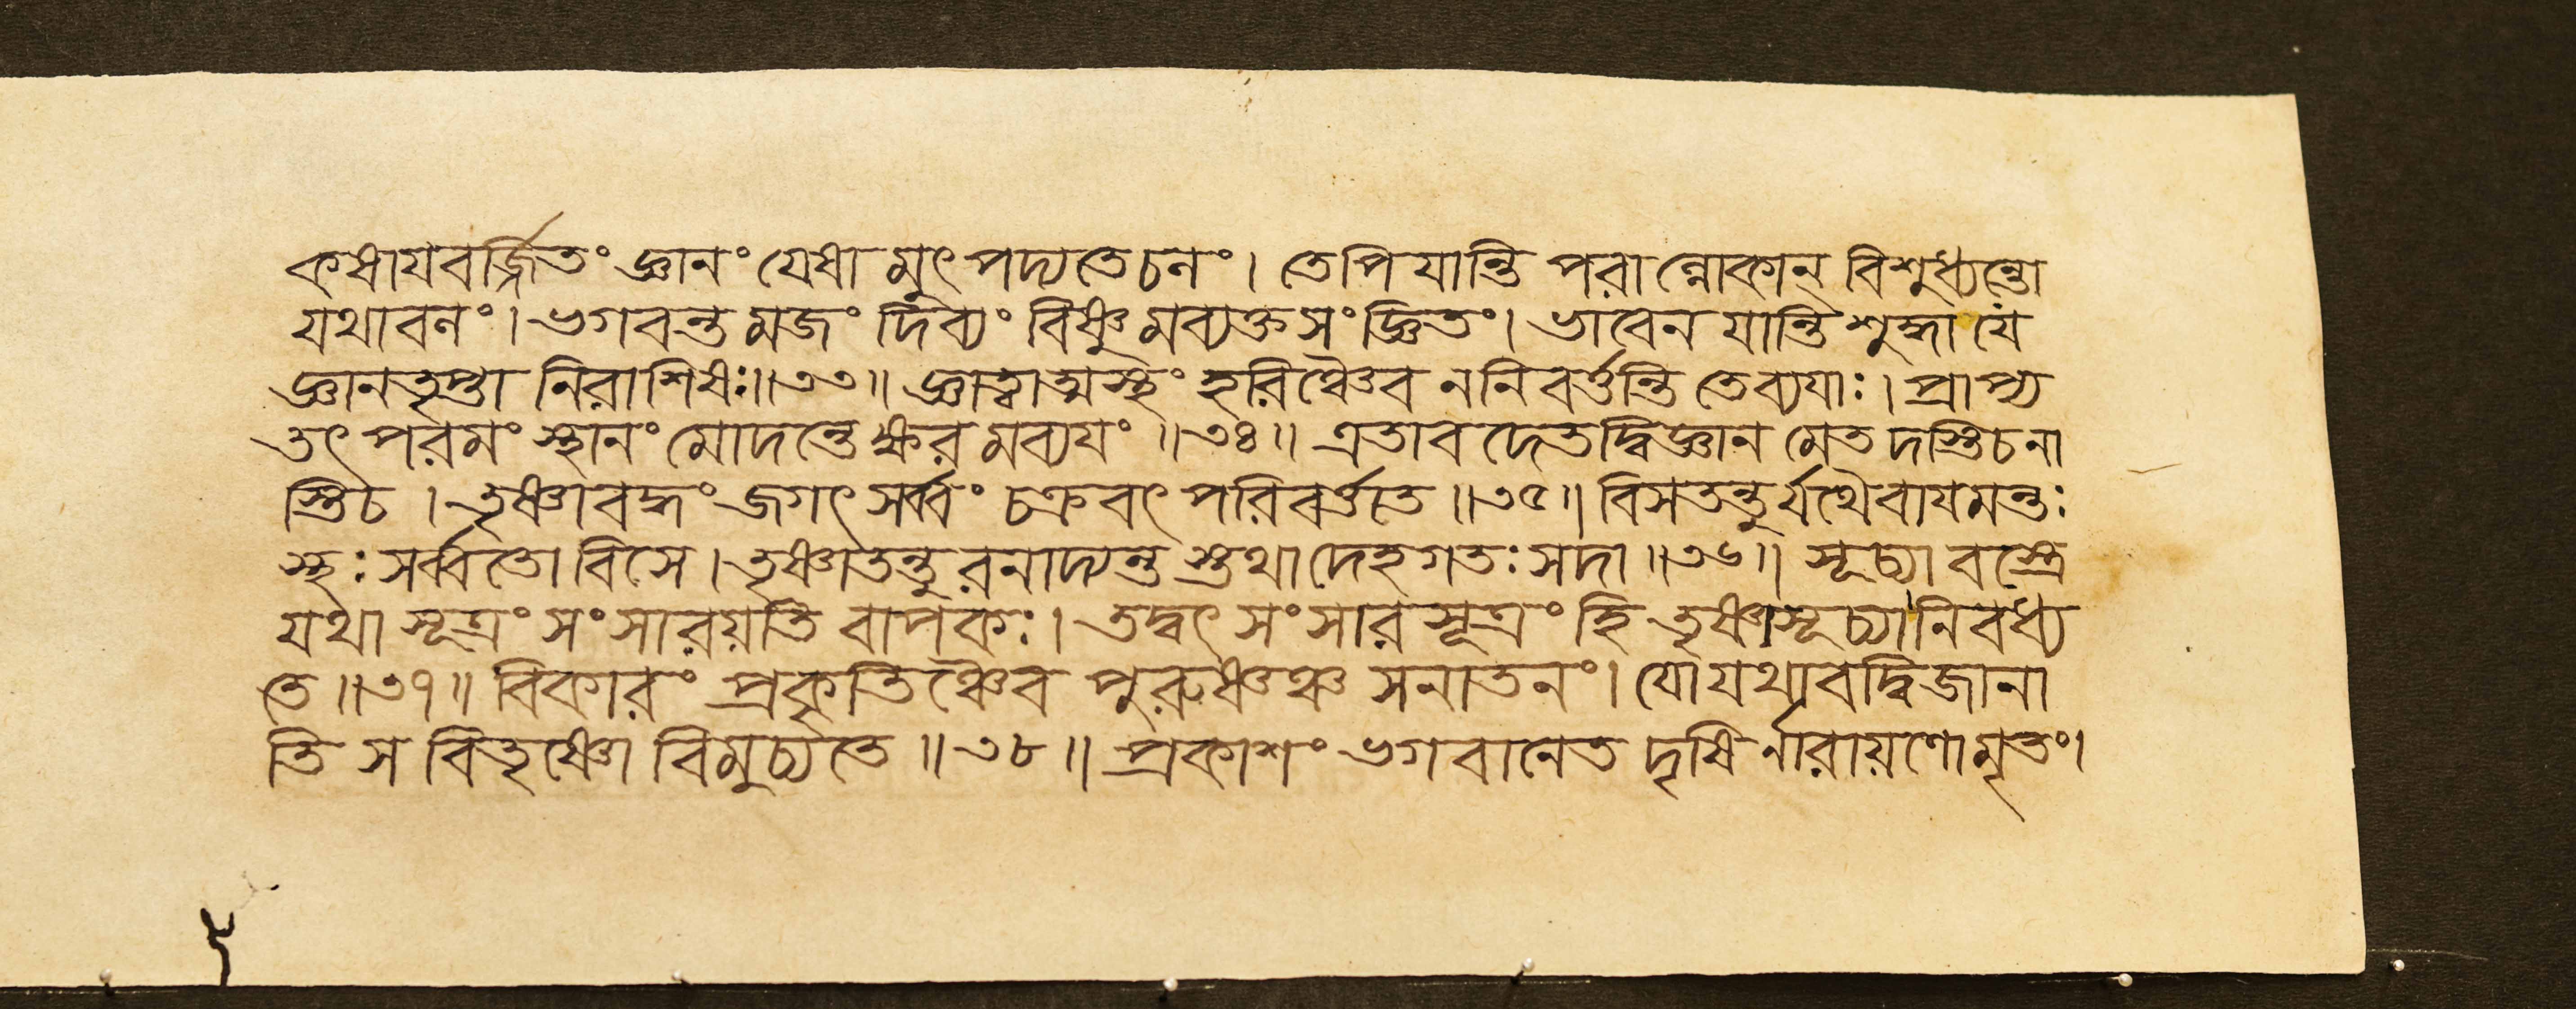 কষাযবর্জ্জিতং জ্ঞানং যেষা মুৎ পদ্যতেচনং। তেপি যান্তি পরা ল্লোকান্ বিশুধ্যন্তো
যথাবনং। ভগবন্ত মজং দিব্যং বিষ্ণু মব্যক্ত সং জ্ঞিতং। ভাবেন যান্তি শুদ্ধা যে
জ্ঞানতৃপ্তা নিরাশিষঃ॥৩৩॥ জ্ঞাত্বাত্মস্থং হরিঞ্চৈব ননিবর্ত্তন্তি তেব্যযাঃ। প্রাপ্য
তৎ পরমং স্থানং মোদন্তে ক্ষর মব্যযং ॥৩৪॥ এতাব দেতদ্বিজ্ঞান মেত দস্তিচনা
স্তিচ । তৃষ্ণাবদ্ধং জগৎ সর্ব্বং চক্রবৎ পরিবর্ত্ততে ॥৩৫॥ বিসতন্তুর্যথৈবাযমন্তঃ
স্থঃ সর্ব্বতো বিসে। তৃষ্ণাতন্তু রনাদ্যন্ত স্তথা দেহগতঃ সদা ॥৩৬॥ সূচ্যা বস্ত্রে
যথা সূত্রং সং সারয়তি বাপকঃ। তদ্বৎ সং সার সূত্রং হি তৃষ্ণাসূচ্যা নিবধ্য
তে ॥৩৭॥ বিকারং প্রকৃতিঞ্চৈব পুরুষঞ্চ সনাতনং। যোযথাবদ্বিজানা
তি স বিতৃষ্ণো বিমুচ্যতে ॥৩৮॥ প্রকাশং ভগবানেত দৃষি র্নারায়ণোমৃতং।